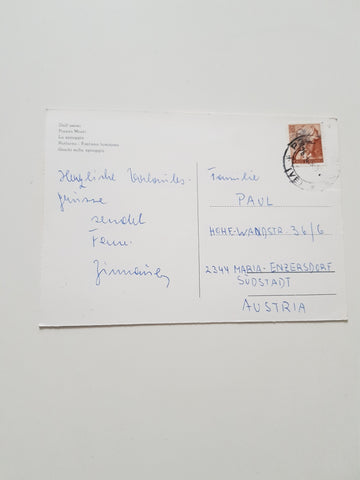 Piazza Monti
La spiaggia
Notturno - Fontana luminosa
Giochi sulla spiaggia
Herzliche Urlaubs-
grüsse
sendet
Fam.
Familie
PAUL
HOHE-WANDSTR. 36/6
2344 MARIA-ENZERSDORF
SÜDSTADT
AUSTRIA